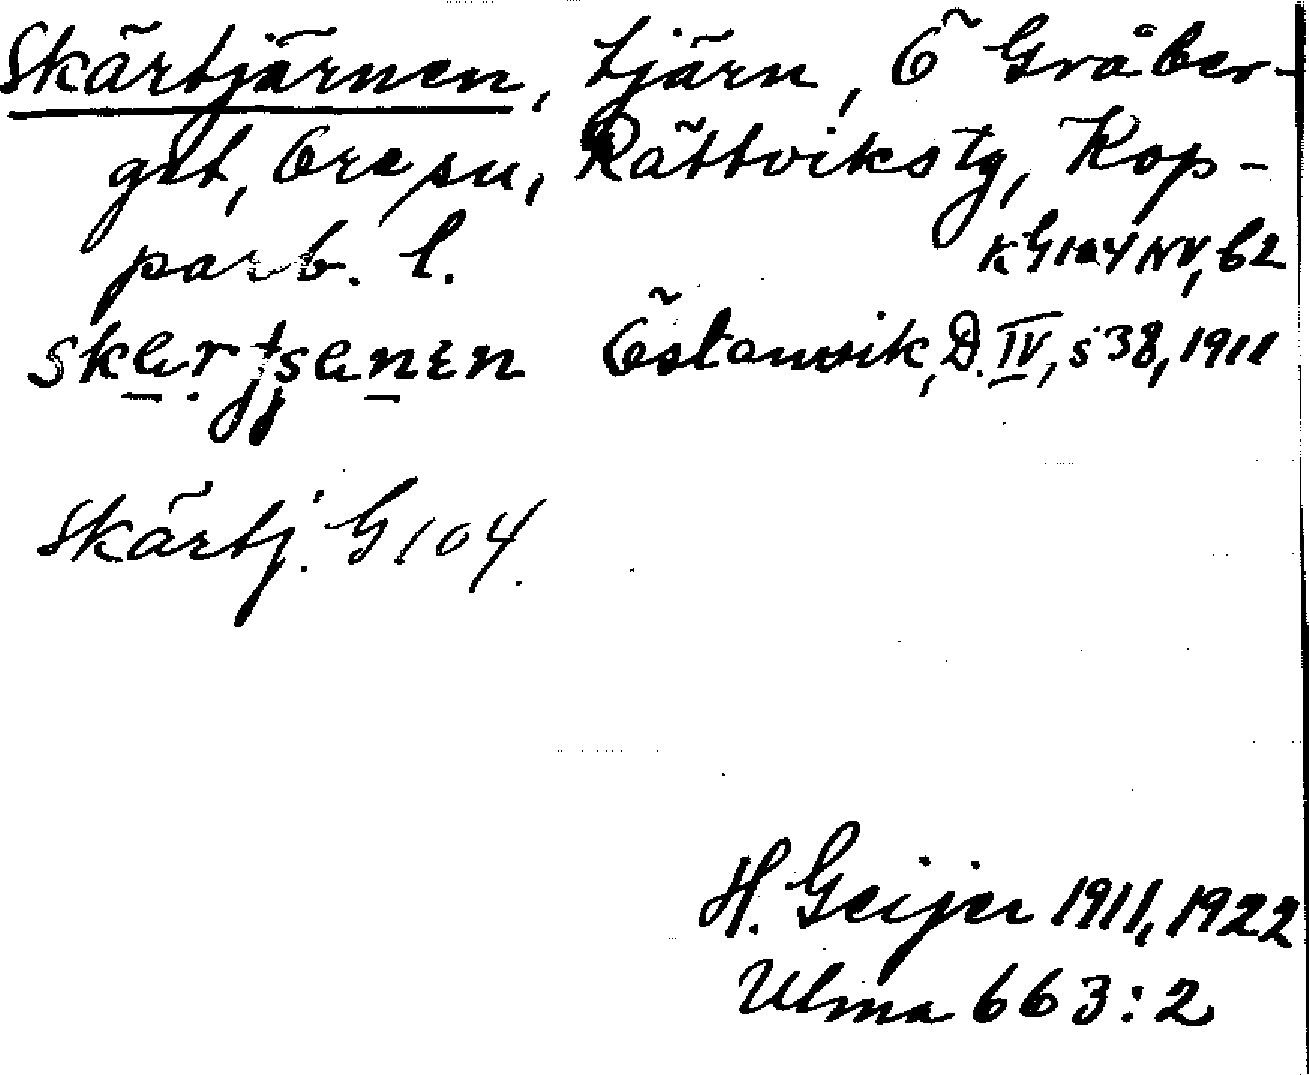 Skärtjärnen, tjärn, Ö Gråber-
get, Ore sn, Rättviks tg, Kop-
parb. l.
KG 104 NV, b2
Östanvik, D. IV, s 38, 1911
Skärtj. G 104.
H. Geijer 1911, 1922
Ulma 663:2